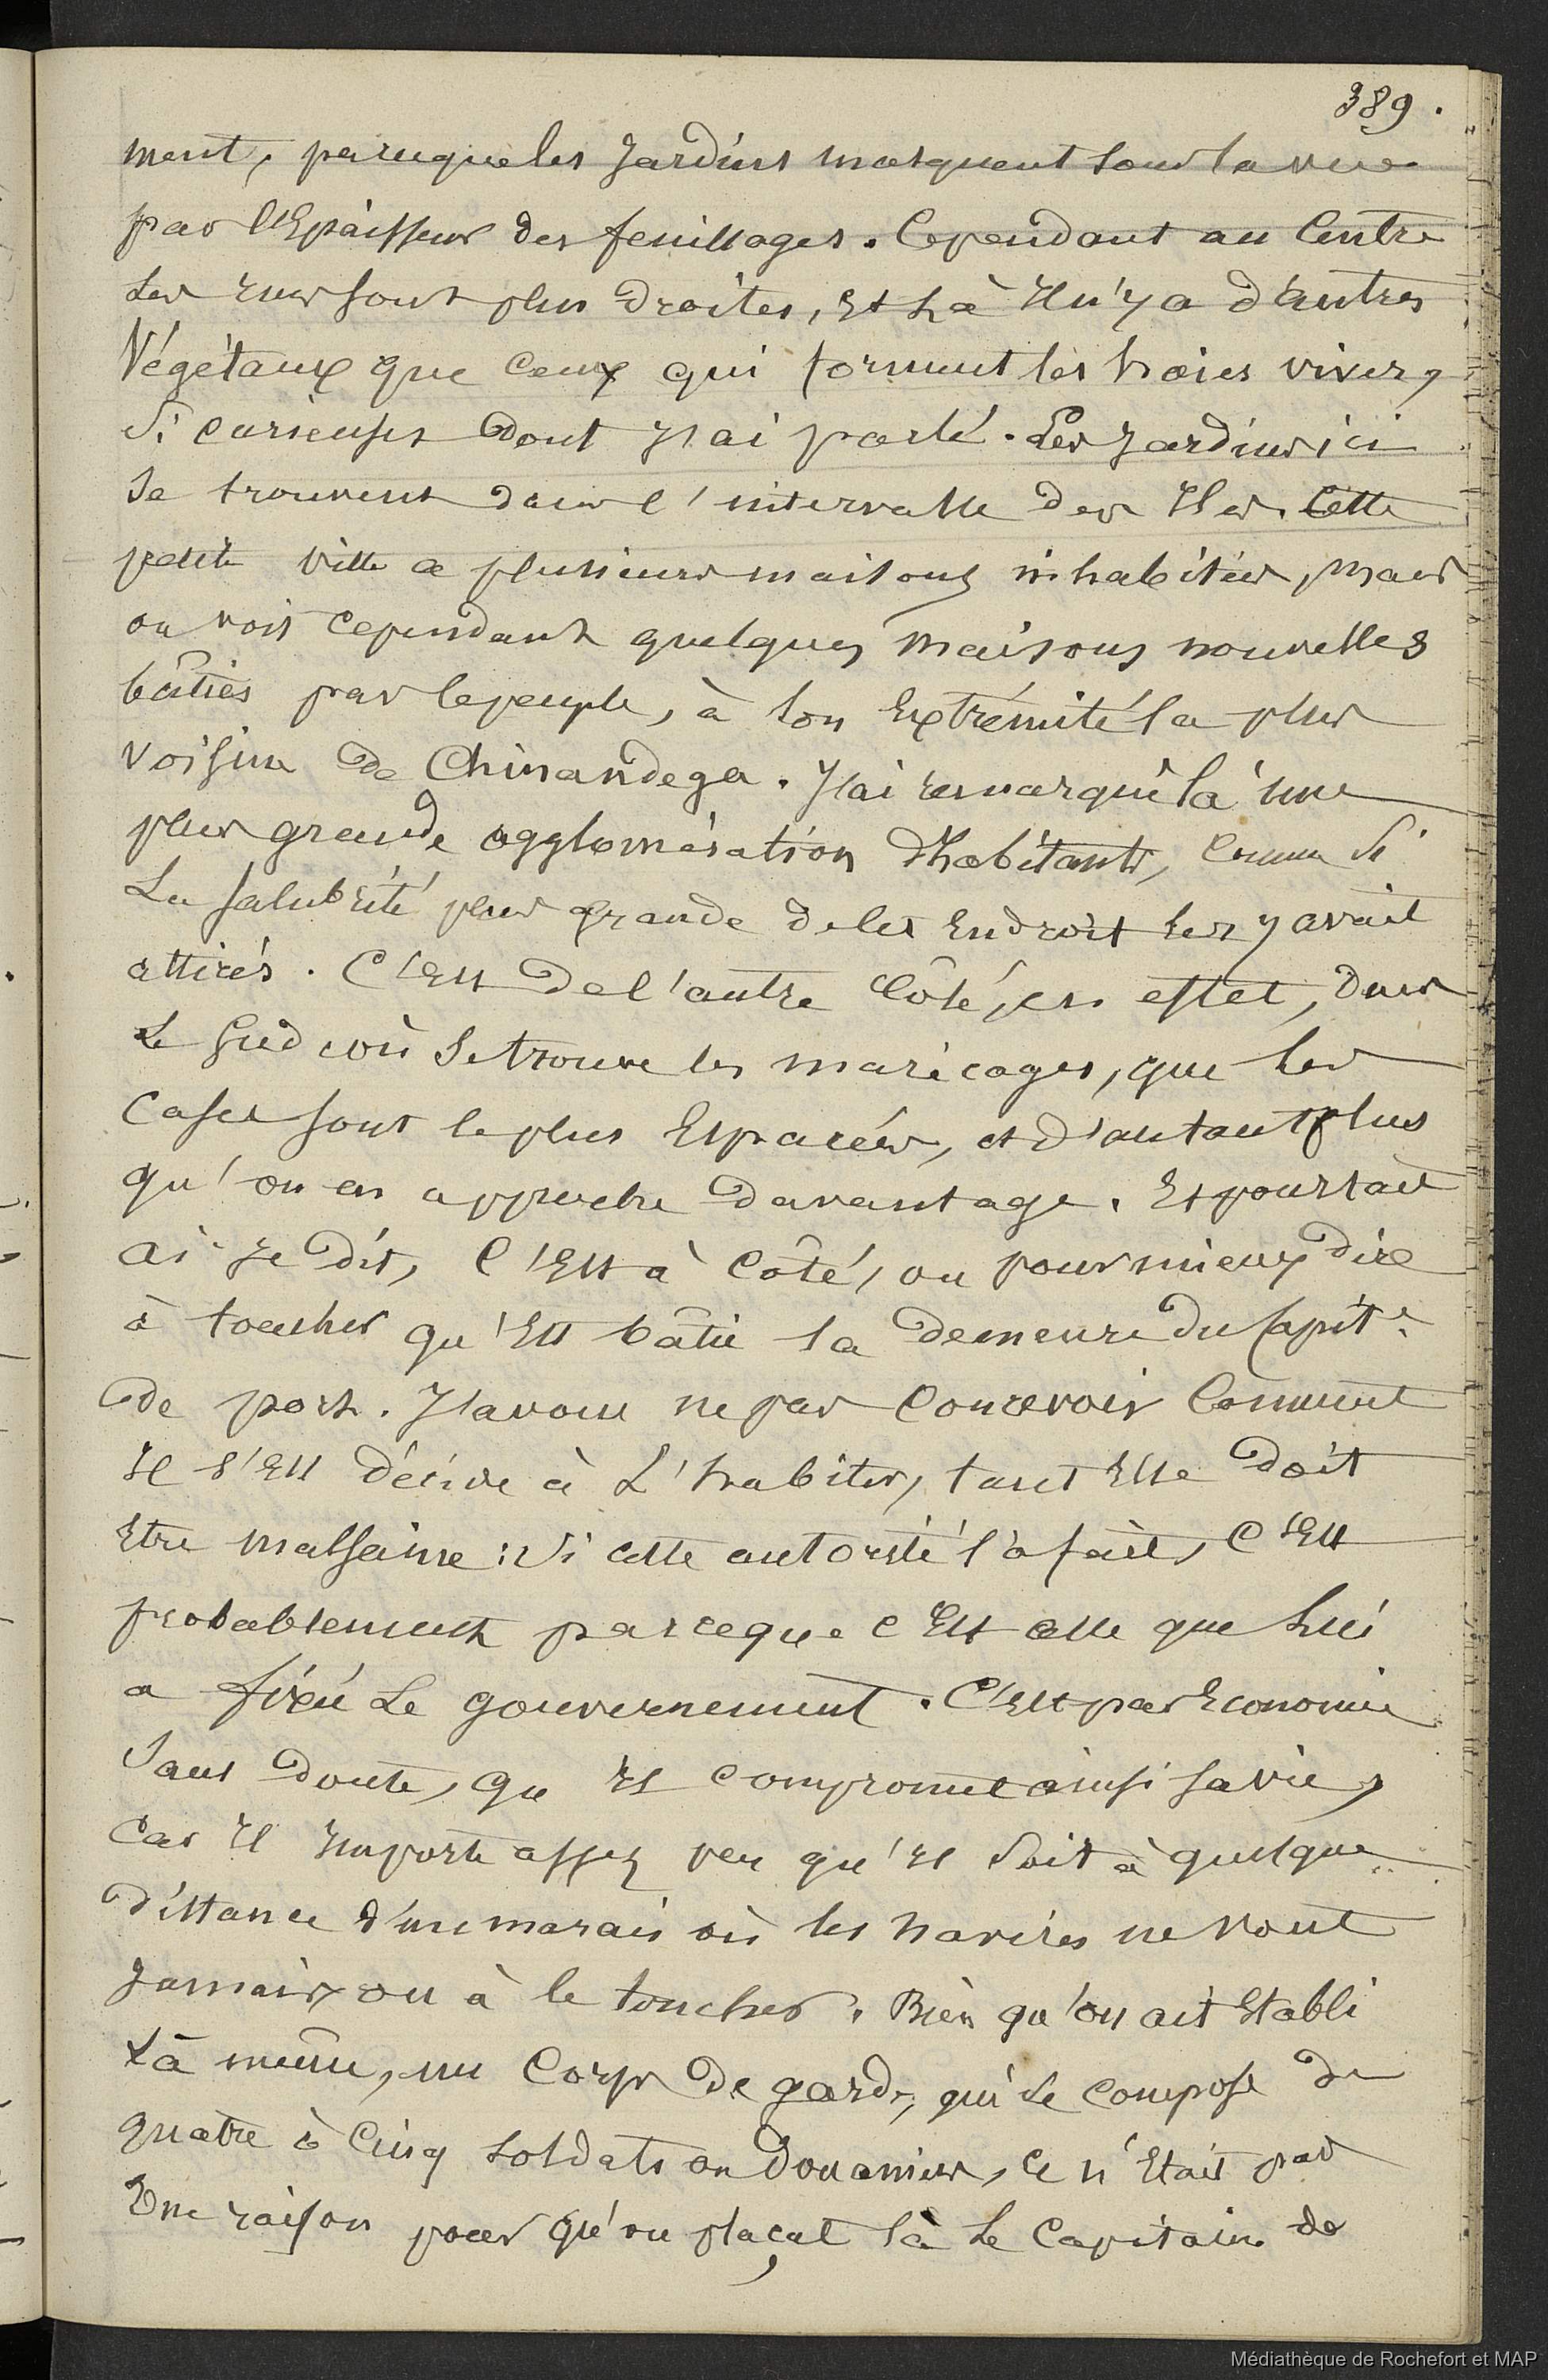 389.
ment, parceque les jardins masquent tout la vue
par l'Epaisseur des feuillages. Cependant au Centre
Les rues sont plus droites, Et Là Il n'y a d'autres
Végétaux que ceux qui forment les haies vives,
Si curieuses dont J'ai parlé. Les Jardins ici
Se trouvent dans l'intervalle des Iles. Cette
petite ville a plusieurs maisons inhabitées, mais
on voit cependant quelques maisons nouvelles
bâties par le peuple, à son Extrémité la plus
voisine de Chinandega. J'ai remarqué là une
plus grande agglomération d'habitants, Comme Si
La salubrité plus grande de cet Endroit les y avait
attirés. C'Est de l'autre Côté, en effet, dans
Le Sud où Se trouve les marécages, que les
Cases sont le plus Espacées, et d'autant plus
qu'on en approche davantage. Et pourtant
ai-Je dit, C'Est à Côté, ou pour mieux dire
à toucher qu'Est bâtie la demeure du Capite.
de port. J'avoue ne pas Concevoir Comment
Il s'Est décidé à L'habiter, tant Elle doit
Etre malsaine : Si cette autorité l'a fait, C'Est
probablement parceque c'Est celle que lui
a fixée Le gouvernement. C'Est par Economie
Sans doute, qu'Il compromet ainsi sa vie,
Car Il Importe assez peu qu'Il Soit à quelque
distance d'un marais où les navires ne vont
Jamais, ou à le toucher. Bien qu'on ait Etabli
Là même, un Corps de garde, qui Se compose de
quatre à Cinq soldats ou Douaniers, Ce n'Etait pas
Une raison pour qu'on plaçat là Le Capitaine de
Médiathèque de Rochefort et MAP